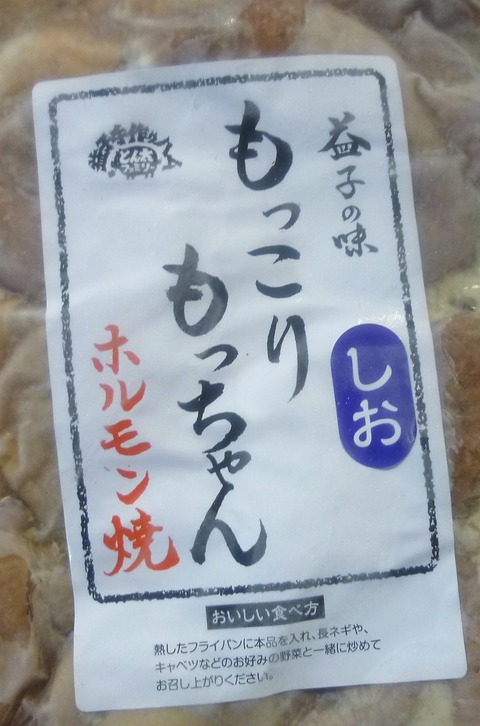 益子の味
もっこり
もっちゃん
ホルモン焼
しお
おいしい食べ方
熱したフライパンに本品を入れ、長ネギや、
キャベツなどのお好みの野菜と一緒に炒めて
お召し上がりください。